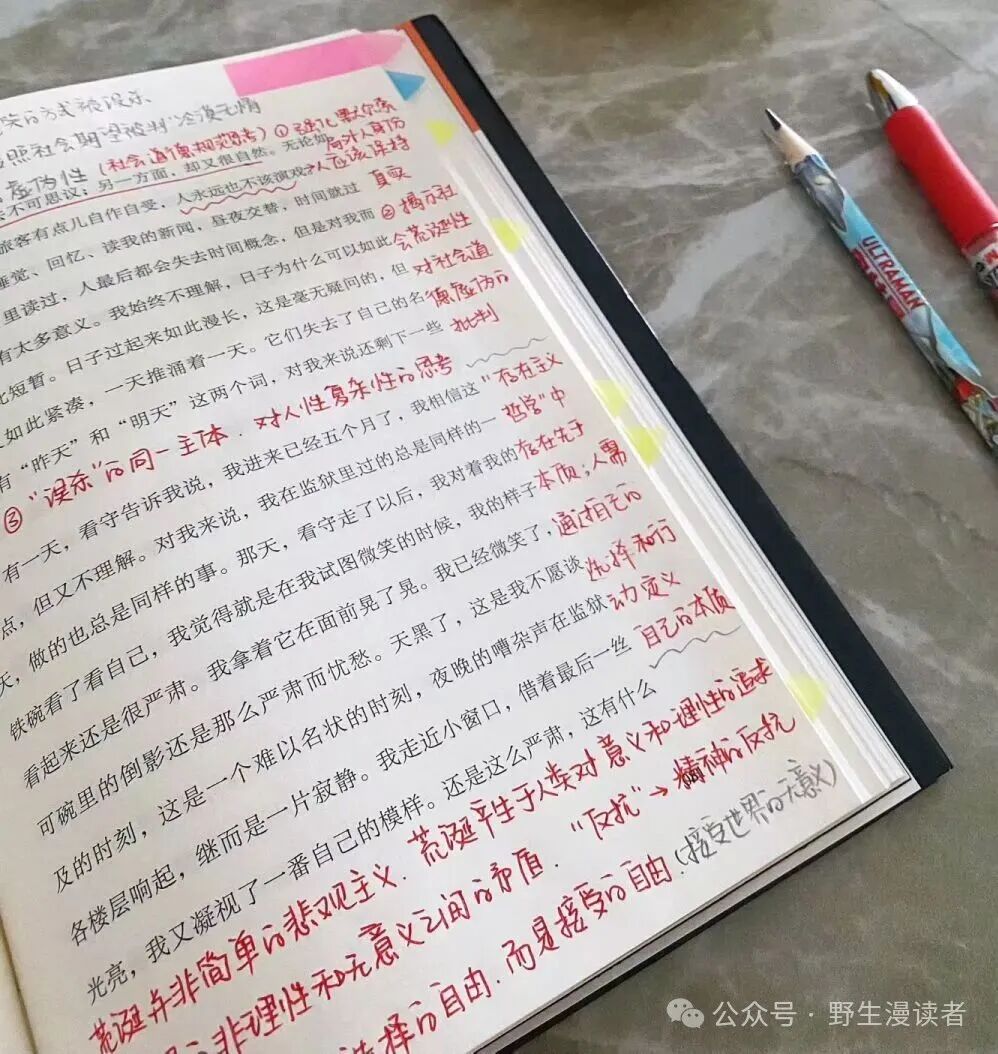 照社会期望被判“冷漠无情
虚伪性(社会道德规范思考)①强化默尔索
不可思议；另一方面，却又很自然。无论如
局外人身份
旅客有点儿自作自受，人永远也不该演戏→人应该保持
真实
睡觉、回忆、读我的新闻，昼夜交替，时间就过
②揭示社
里读过，人最后都会失去时间概念，但是对我而
会荒诞性
有太多意义。我始终不理解，日子为什么可以如此
对社会道
此短暂。日子过起来如此漫长，这是毫无疑问的，但
德虚伪的
如此紧凑，一天推涌着一天。它们失去了自己的名
批判
有“昨天”和“明天”这两个词，对我来说还剩下一些
③“误杀”的同一主体．对人性复杂性的思考
有一天，看守告诉我说，我进来已经五个月了，我相信这
“存在主义
点，但又不理解。对我来说，我在监狱里过的总是同样的一
哲学”中
天，做的也总是同样的事。那天，看守走了以后，我对着我的
存在先于
铁碗看了看自己，我觉得就是在我试图微笑的时候，我的样子
本质；人需
看起来还是很严肃。我拿着它在面前晃了晃。我已经微笑了，
通过自己的
可碗里的倒影还是那么严肃而忧愁。天黑了，这是我不愿谈
选择和行
及的时刻，这是一个难以名状的时刻，夜晚的嘈杂声在监狱
动定义
各楼层响起，继而是一片寂静。我走近小窗口，借着最后一丝
自己的本质
光亮，我又凝视了一番自己的模样。还是这么严肃，这有什么
荒诞并非简单的悲观主义．荒诞产生于人类对意义和理性的追求
非理性和无意义之间的矛盾．“反抗”→精神的反抗
选择的自由．而是接受的自由．(接受世界的无意义)
ULTRAMAN
公众号·野生漫读者